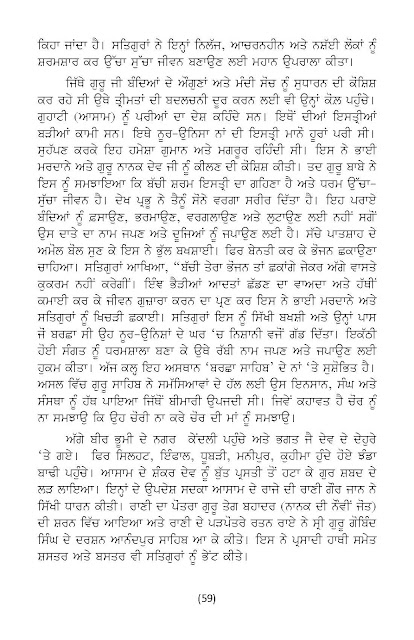 ਕਿਹਾ ਜਾਂਦਾ ਹੈ। ਸਤਿਗੁਰਾਂ ਨੇ ਇਨ੍ਹਾਂ ਨਿਲੱਜ, ਆਚਰਨਹੀਨ ਅਤੇ ਨਸ਼ੱਈ ਲੋਕਾਂ ਨੂੰ
ਸ਼ਰਮਸ਼ਾਰ ਕਰ ਉੱਚਾ ਸੁੱਚਾ ਜੀਵਨ ਬਣਾਉਣ ਲਈ ਮਹਾਨ ਉਪਰਾਲਾ ਕੀਤਾ।
ਜਿੱਥੇ ਗੁਰੂ ਜੀ ਬੰਦਿਆਂ ਦੇ ਔਗੁਣਾਂ ਅਤੇ ਮੰਦੀ ਸੋਚ ਨੂੰ ਸੁਧਾਰਨ ਦੀ ਕੋਸ਼ਿਸ਼
ਕਰ ਰਹੇ ਸੀ ਉਥੇ ਤ੍ਰੀਮਤਾਂ ਦੀ ਬਦਲਚਨੀ ਦੂਰ ਕਰਨ ਲਈ ਵੀ ਉਨ੍ਹਾਂ ਕੋਲ ਪਹੁੰਚੇ।
ਗੁਹਾਟੀ (ਆਸਾਮ) ਨੂੰ ਪਰੀਆਂ ਦਾ ਦੇਸ਼ ਕਹਿੰਦੇ ਸਨ। ਇਥੋਂ ਦੀਆਂ ਇਸਤ੍ਰੀਆਂ
ਬੜੀਆਂ ਕਾਮੀ ਸਨ। ਇਥੇ ਨੂਰ-ਉਨਿਸਾ ਨਾਂ ਦੀ ਇਸਤ੍ਰੀ ਮਾਨੋ ਹੂਰਾਂ ਪਰੀ ਸੀ।
ਸੁਹੱਪਣ ਕਰਕੇ ਇਹ ਹਮੇਸ਼ਾ ਗੁਮਾਨ ਅਤੇ ਮਗਰੂਰ ਰਹਿੰਦੀ ਸੀ। ਇਸ ਨੇ ਭਾਈ
ਮਰਦਾਨੇ ਅਤੇ ਗੁਰੂ ਨਾਨਕ ਦੇਵ ਜੀ ਨੂੰ ਕੀਲਣ ਦੀ ਕੋਸ਼ਿਸ਼ ਕੀਤੀ। ਤਦ ਗੁਰੂ ਬਾਬੇ ਨੇ
ਇਸ ਨੂੰ ਸਮਝਾਇਆ ਕਿ ਬੱਚੀ ਸ਼ਰਮ ਇਸਤ੍ਰੀ ਦਾ ਗਹਿਣਾ ਹੈ ਅਤੇ ਧਰਮ ਉੱਚਾ-
ਸੁੱਚਾ ਜੀਵਨ ਹੈ। ਦੇਖ ਪ੍ਰਭੂ ਨੇ ਤੈਨੂੰ ਸੋਨੇ ਵਰਗਾ ਸਰੀਰ ਦਿੱਤਾ ਹੈ। ਇਹ ਪਰਾਏ
ਬੰਦਿਆਂ ਨੂੰ ਫ਼ਸਾਉਣ, ਭਰਮਾਉਣ, ਵਰਗਲਾਉਣ ਅਤੇ ਲੁਟਾਉਣ ਲਈ ਨਹੀਂ ਸਗੋਂ
ਉਸ ਦਾਤੇ ਦਾ ਨਾਮ ਜਪਣ ਅਤੇ ਦੂਜਿਆਂ ਨੂੰ ਜਪਾਉਣ ਲਈ ਹੈ। ਸੱਚੇ ਪਾਤਸ਼ਾਹ ਦੇ
ਅਮੋਲ ਬੋਲ ਸੁਣ ਕੇ ਇਸ ਨੇ ਭੁੱਲ ਬਖਸ਼ਾਈ। ਫਿਰ ਬੇਨਤੀ ਕਰ ਕੇ ਭੋਜਨ ਛਕਾਉਣਾ
ਚਾਹਿਆ। ਸਤਿਗੁਰਾਂ ਆਖਿਆ, “ਬੱਚੀ ਤੇਰਾ ਭੋਜਨ ਤਾਂ ਛਕਾਂਗੇ ਜੇਕਰ ਅੱਗੇ ਵਾਸਤੇ
ਕੁਕਰਮ ਨਹੀਂ ਕਰੇਗੀਂ। ਇੰਞ ਭੈੜੀਆਂ ਆਦਤਾਂ ਛੱਡਣ ਦਾ ਵਾਅਦਾ ਅਤੇ ਹੱਥੀਂ
ਕਮਾਈ ਕਰ ਕੇ ਜੀਵਨ ਗੁਜ਼ਾਰਾ ਕਰਨ ਦਾ ਪ੍ਰਣ ਕਰ ਇਸ ਨੇ ਭਾਈ ਮਰਦਾਨੇ ਅਤੇ
ਸਤਿਗੁਰਾਂ ਨੂੰ ਖਿਚੜੀ ਛਕਾਈ। ਸਤਿਗੁਰਾਂ ਇਸ ਨੂੰ ਸਿੱਖੀ ਬਖਸ਼ੀ ਅਤੇ ਉਨ੍ਹਾਂ ਪਾਸ
ਜੋ ਬਰਛਾ ਸੀ ਉਹ ਨੂਰ-ਉਨਿਸ਼ਾਂ ਦੇ ਘਰ ’ਚ ਨਿਸ਼ਾਨੀ ਵਜੋਂ ਗੱਡ ਦਿੱਤਾ। ਇਕੱਠੀ
ਹੋਈ ਸੰਗਤ ਨੂੰ ਧਰਮਸ਼ਾਲਾ ਬਣਾ ਕੇ ਉਥੇ ਰੱਬੀ ਨਾਮ ਜਪਣ ਅਤੇ ਜਪਾਉਣ ਲਈ
ਹੁਕਮ ਕੀਤਾ। ਅੱਜ ਕਲ੍ਹ ਇਹ ਅਸਥਾਨ ‘ਬਰਛਾ ਸਾਹਿਬ’ ਦੇ ਨਾਂ ’ਤੇ ਸੁਸ਼ੋਭਿਤ ਹੈ।
ਅਸਲ ਵਿੱਚ ਗੁਰੂ ਸਾਹਿਬ ਨੇ ਸਮੱਸਿਆਵਾਂ ਦੇ ਹੱਲ ਲਈ ਉਸ ਇਨਸਾਨ, ਸੰਘ ਅਤੇ
ਸੰਸਥਾ ਨੂੰ ਹੱਥ ਪਾਇਆ ਜਿੱਥੋਂ ਬੀਮਾਰੀ ਉਪਜਦੀ ਸੀ। ਜਿਵੇਂ ਕਹਾਵਤ ਹੈ ਚੋਰ ਨੂੰ
ਨਾ ਸਮਝਾਉ ਕਿ ਉਹ ਚੋਰੀ ਨਾ ਕਰੇ ਚੋਰ ਦੀ ਮਾਂ ਨੂੰ ਸਮਝਾਉ।
ਅੱਗੇ ਬੀਰ ਭੂਮੀ ਦੇ ਨਗਰ ਕੇਂਦਲੀ ਪਹੁੰਚੇ ਅਤੇ ਭਗਤ ਜੈ ਦੇਵ ਦੇ ਦੇਹੁਰੇ
’ਤੇ ਗਏ। ਫਿਰ ਸਿਲਹਟ, ਇੰਫਾਲ, ਧੂਬੜੀ, ਮਨੀਪੁਰ, ਕੁਹੀਮਾ ਹੁੰਦੇ ਹੋਏ ਝੰਡਾ
ਬਾਢੀ ਪਹੁੰਚੇ। ਆਸਾਮ ਦੇ ਸ਼ੰਕਰ ਦੇਵ ਨੂੰ ਬੁੱਤ ਪ੍ਰਸਤੀ ਤੋਂ ਹਟਾ ਕੇ ਗੁਰ ਸ਼ਬਦ ਦੇ
ਲੜ ਲਾਇਆ। ਇਨ੍ਹਾਂ ਦੇ ਉਪਦੇਸ਼ ਸਦਕਾ ਆਸਾਮ ਦੇ ਰਾਜੇ ਦੀ ਰਾਣੀ ਗੌਰ ਜਾਨ ਨੇ
ਸਿੱਖੀ ਧਾਰਨ ਕੀਤੀ। ਰਾਣੀ ਦਾ ਪੋਤਰਾ ਗੁਰੂ ਤੇਗ ਬਹਾਦਰ (ਨਾਨਕ ਦੀ ਨੌਵੀਂ ਜੋਤ)
ਦੀ ਸ਼ਰਨ ਵਿੱਚ ਆਇਆ ਅਤੇ ਰਾਣੀ ਦੇ ਪੜਪੋਤਰੇ ਰਤਨ ਰਾਏ ਨੇ ਸ੍ਰੀ ਗੁਰੂ ਗੋਬਿੰਦ
ਸਿੰਘ ਦੇ ਦਰਸ਼ਨ ਆਨੰਦਪੁਰ ਸਾਹਿਬ ਆ ਕੇ ਕੀਤੇ। ਇਸ ਨੇ ਪ੍ਰਸਾਦੀ ਹਾਥੀ ਸਮੇਤ
ਸ਼ਸਤਰ ਅਤੇ ਬਸਤਰ ਵੀ ਸਤਿਗੁਰਾਂ ਨੂੰ ਭੇਂਟ ਕੀਤੇ।
(59)